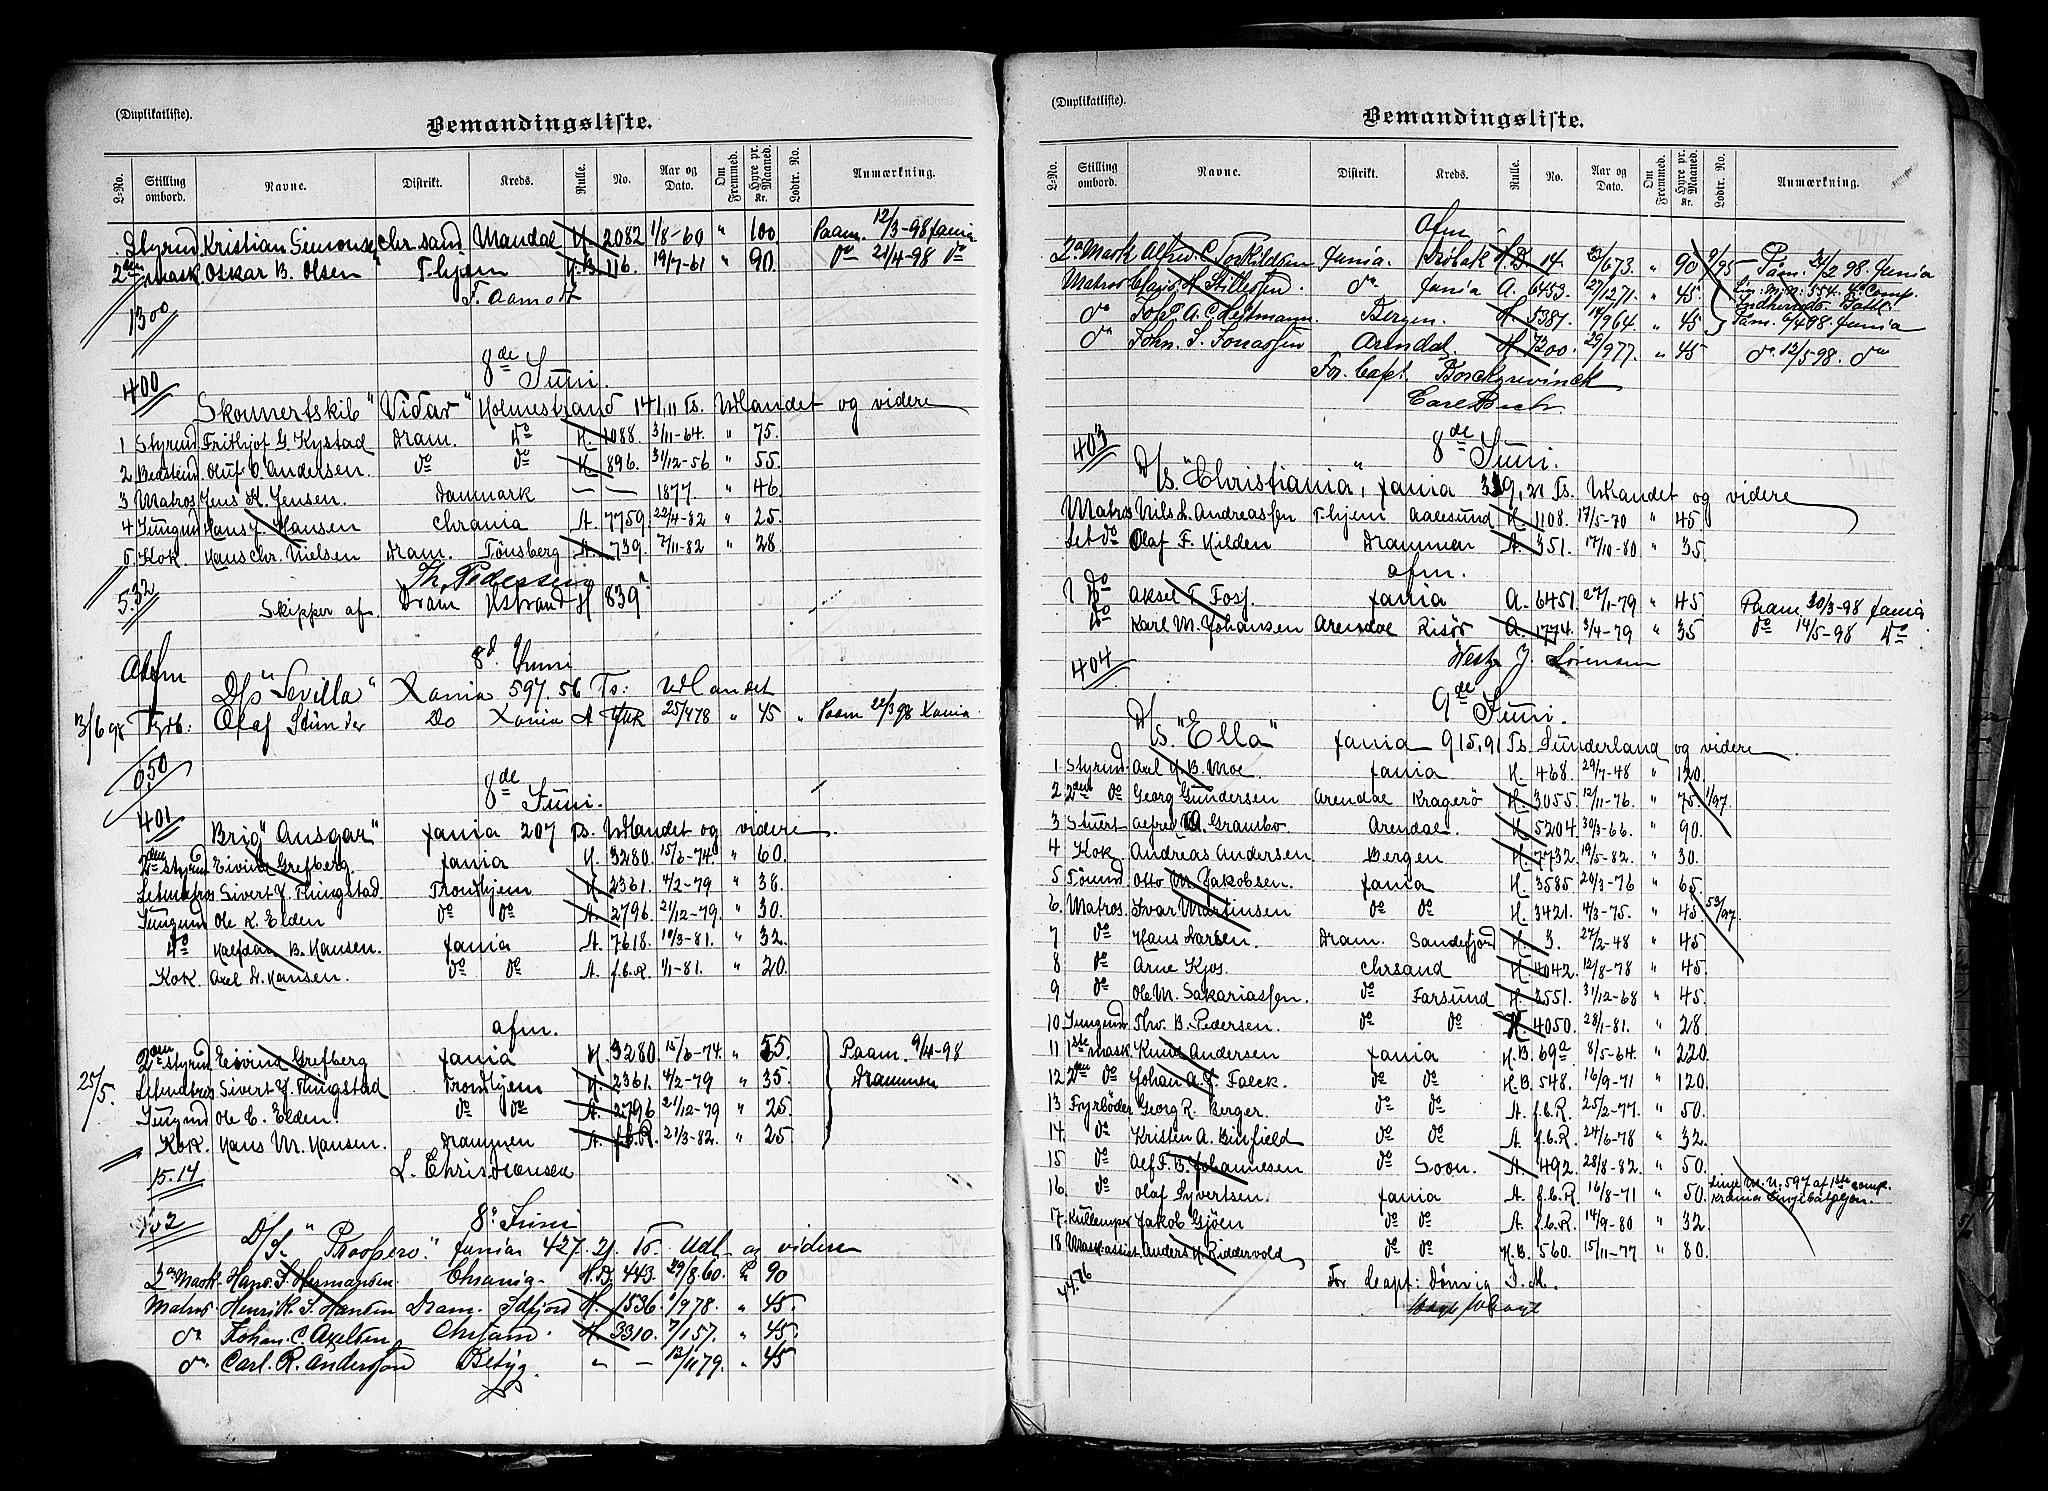 (Duplikatliste).
Bemandingsliste.
L-No. Stilling ombord. Navne. Distrikt. Kreds. Rulle. No. Aar og Dato. Om Fremmed. Hyre pr. Maaned. Kr. Lodtr. No. Anmærkning.
Styrmd Kristian Simonsen Chr.sand Mandal H 2082 1/8-60 " 100 Paam. 12/3-98 fania
2den mask. Oskar B. Olsen T.hjem H.B. 116. 19/7-61 " 90 do 21/4-98 do
F. Aamodt
1300
8de Juni.
400
Skonnertskib "Vidar" Holmestrand 141,11 Ts. Udlandet og videre
1 Styrmd Frithjof G. Kystad Dram. do H. 1088. 3/11-64. " 75.
2 Bestmd. Oluf O. Andersen. do do H. 896. 31/12-56 " 55.
3 Matros Jens K. Jensen. Danmark — — 1877. " 46.
4 Jungmd Hans J. Hansen Chrania A. 7759. 22/4-82 " 25.
5 Kok. Hans Chr. Nielsen Dram. Tönsberg A. 739. 7/11-82 " 28.
Th. Pedersen
532
Skipper af Dram Hstrand H 839
Afm 8d Juni
D/s "Sevilla" Xania 597.56 Ts: Udlandet
13/6 98 Fyrb: Olaf Stünder Do Xania A 25/4 78 " 45 " Paam 22/3 98 Xania
050
8de Juni.
401
Brig "Ansgar" fania 207 Ts. Udlandet og videre.
2den Styrmd Eivind Grefberg. fania H. 3280. 15/6-74. " 60.
Letmatros Sivert J. Ringstad. Trondhjem H 2361. 4/2-79 " 38.
Jungmd Ole K. Elden do do A. 2796. 21/12-79. " 30.
do Halfdan B. Hansen. fania A. 7618. 10/3-81. " 32.
Kok. Axel H. Hansen. do do A. f.C.R. 1/1-81. " 20.
afm.
2den Styrmd Eivind Grefberg fania H. 3280. 15/6-74. " 55. Paam. 9/4-98
25/5. Letmatros Sivert J. Ringstad Trondhjem H 2361. 4/2-79 " 35. Drammen
Jungmd Ole C. Elden. do do A. 2796 21/12-79 " 25.
Kok. Hans M. Hansen. Drammen A. f.C.R. 21/3-82. " 25
15.14 L. Christiansen
402 8de Juni
D/S "Prospero." fania 427.21 Ts Udl og videre
2den Mask. Hans. J. Hermansen. Chrania. H.B. 443. 29/8.60. " 90
Matros Henrik. S. Hansen Dram. Idfjord H. 1536. 978. " 45.
do Johan. C. Axelsen Chrsand. H 3310. 7/157. " 45.
do Carl. R. Anderson Betyg. " — 13/1179. " 45
(Duplikatliste).
Bemandingsliste.
L-No. Stilling ombord. Navne. Distrikt. Kreds. Rulle. No. Aar og Dato. Om Fremmed. Hyre pr. Maaned. Kr. Lodtr. No. Anmærkning.
Afm
2den Mask Alfred. C. Torkildsen fania. Dröbak H.B 14. 673. " 90 9/95 Paam. 21/2 98. fania
Matros Claus. H. Stillefsen. do fania A. 6453. 27/1271. " 45. Lin. M. n. 554. 4de Comp.
do Johs. A. C. Heitmann. Bergen. H 5387. 964. " 45 Paam. 6/498. fania
do John. S. Jonassen Arendal H 1300. 29/977. " 45 do 12/5-98. do
For. Capt. Borchgrevinck
Carl Bech
403 8de Juni.
D/s. "Christiania", fania 319,21 Ts. Udlandet og videre
Matros Nils L. Andreassen T.hjem Aalesund H. 1108. 17/5-70 " 45
Let do Olaf F. Kilden Drammen A. 351. 17/10-80 " 35.
afm.
1 Do Aksel T. Foss. fania A. 6451. 27/1-79 " 45 Paam. 30/3-98 fania
do Karl M. Johansen Arendal Risör A. 1774. 3/4-79 " 35 do 14/5-98 do
404 J. Sörensen
9de Juni.
D/s. "Ella" fania 915,91 Ts. Sunderland og videre.
1 Styrmd. Axel J. B. Moe. fania H. 468. 29/7-48 " 120.
2 2den do Georg Gundersen Arendal Kragerö H. 3055. 12/11-76. " 75. 1/97.
3 Stuert Alfred M. Grambo. Arendal. H 5204. 30/3-66. " 90.
4 Kok Andreas Andersen Bergen H. 7732. 19/5-82. " 30.
5 Tömmd Otto M. Jakobsen. fania H. 3585. 20/3-76 " 65.
6. Matros. Ivar Martinsen do do H. 3421. 4/3-75. " 45 53/97
7 do Hans Larsen. Dram. Sandefjord H. 3. 27/2-48 " 45
8 do Arne Kjos. Chrsand H. 4042. 12/8-78 " 45.
9 do Ole M. Sakariassen. do Farsund H. 2551. 31/12-68 " 45.
10 Jungmd Thv. B. Pedersen. do do H. 4050. 28/1-81. " 28
11 1ste mask Knud Andersen fania H.B. 69a 8/5-64. " 220.
12 2den do Johan A. J. Falck. do do H.B. 548. 16/9-71 " 120.
13 Fyrböder Georg R. Berger. do do A. f.C.R. 25/2-77. " 50.
14. do Kristen A. Binfield do do A. f.C.R. 24/6-78 " 32.
15 do Alf F. B. Johannesen do Soon. A. 492. 28/8-82. " 50.
16. do Olaf Syvertsen. fania A. f.C.R. 16/8-71 " 50. Linje M. n. 597 af 1ste comp.
17. Kullemper Jakob Gjöen do do A. f.C.R. 14/9-80 " 32.
18 Mask.assist Anders H. Riddervold do do H.B. 560. 15/11-77 " 80.
44.76 For Capt: Dönvig I. M.